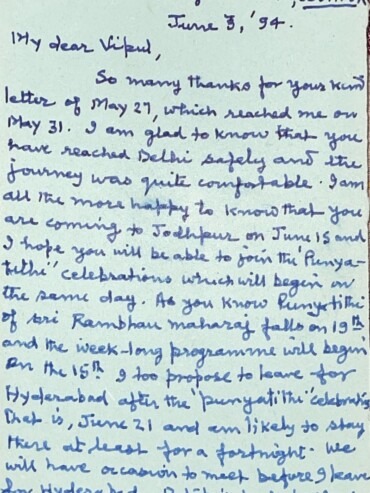 June 3, '94.
My dear Vipul,
So many thanks for your kind
letter of May 27, which reached me on
May 31. I am glad to know that you
have reached Delhi safely and the
journey was quite comfortable. I am
all the more happy to know that you
are coming to Jodhpur on June 15 and
I hope you will be able to join the 'Punya-
tithi' celebrations which will begin on
the same day. As you know Punyatithi
of Sri Rambhau maharaj falls on 19th
and the week-long programme will begin
on the 15th. I too propose to leave for
Hyderabad after the 'punyatithi' celebrations
that is, June 21 and am likely to stay
there at least for a fortnight. We
will have occasion to meet before I leave
for Hyderabad.